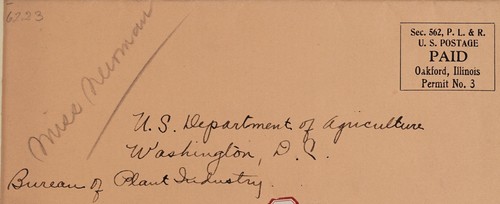 6723
Miss Newman
Sec. 562, P. L. & R.
U. S. POSTAGE
PAID
Oakford, Illinois
Permit No. 3
U.S. Department of Agriculture
Washington, D.C.
Bureau of Plant Industry.